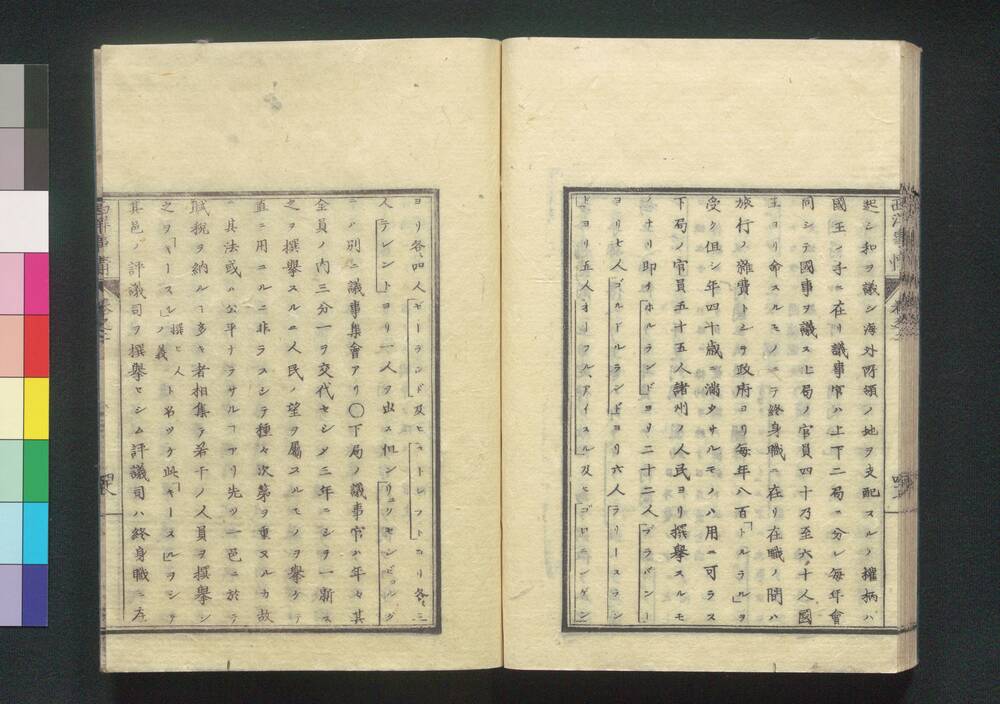 起シ和ヲ議シ海外所領ノ地ヲ支配スルノ權柄ハ
國王ノ手ニ在リ議事官ハ上下二局ニ分レ毎年會
同シテ國事ヲ議ス上局ノ官員四十乃至六十人國
王ヨリ命スルモノニテ終身職ニ在リ在職ノ間ハ
旅行ノ雜費トシテ政府ヨリ毎年八百「トルラル」ヲ
受ク但シ年四十歳ニ滿タサルモノハ用ユ可ラス
下局ノ官員五十五人諸州ノ人民ヨリ撰擧スルモ
ノナリ即イホルランドヨリ二十二人ブラバント
ヨリ七人ゴルドルランドヨリ六人フリースラン
ドヨリ五人オーフルアイスル及ヒゴロニンゲン
西洋事情
ヨリ各四人ゼーランド及ヒユトレフトヨリ各三
人テレントヨリ一人ヲ出ス但シリユクセンビュルグ
ニハ別ニ議事集會アリ〇下局ノ議事官ハ年々其
全員ノ内三分一ヲ交代セシメ三年ニシテ一新ス
之ヲ撰擧スルニ人民ノ望ヲ屬スルモノヲ擧ケテ
直ニ用ユルニ非ラスシテ種々次第ヲ重スルカ故
ニ其法或ハ公平ナラサルコアリ先ツ一邑ニ於テ
賦税ヲ納ルコ多キ者相集テ若干ノ人員ヲ撰擧シ
之ヲ「キースル」ノ義 撰ヒ人ト名ツケ此「キースル」ヲシテ
其邑ノ評議司ヲ撰擧セシム評議司ハ終身職ニ在